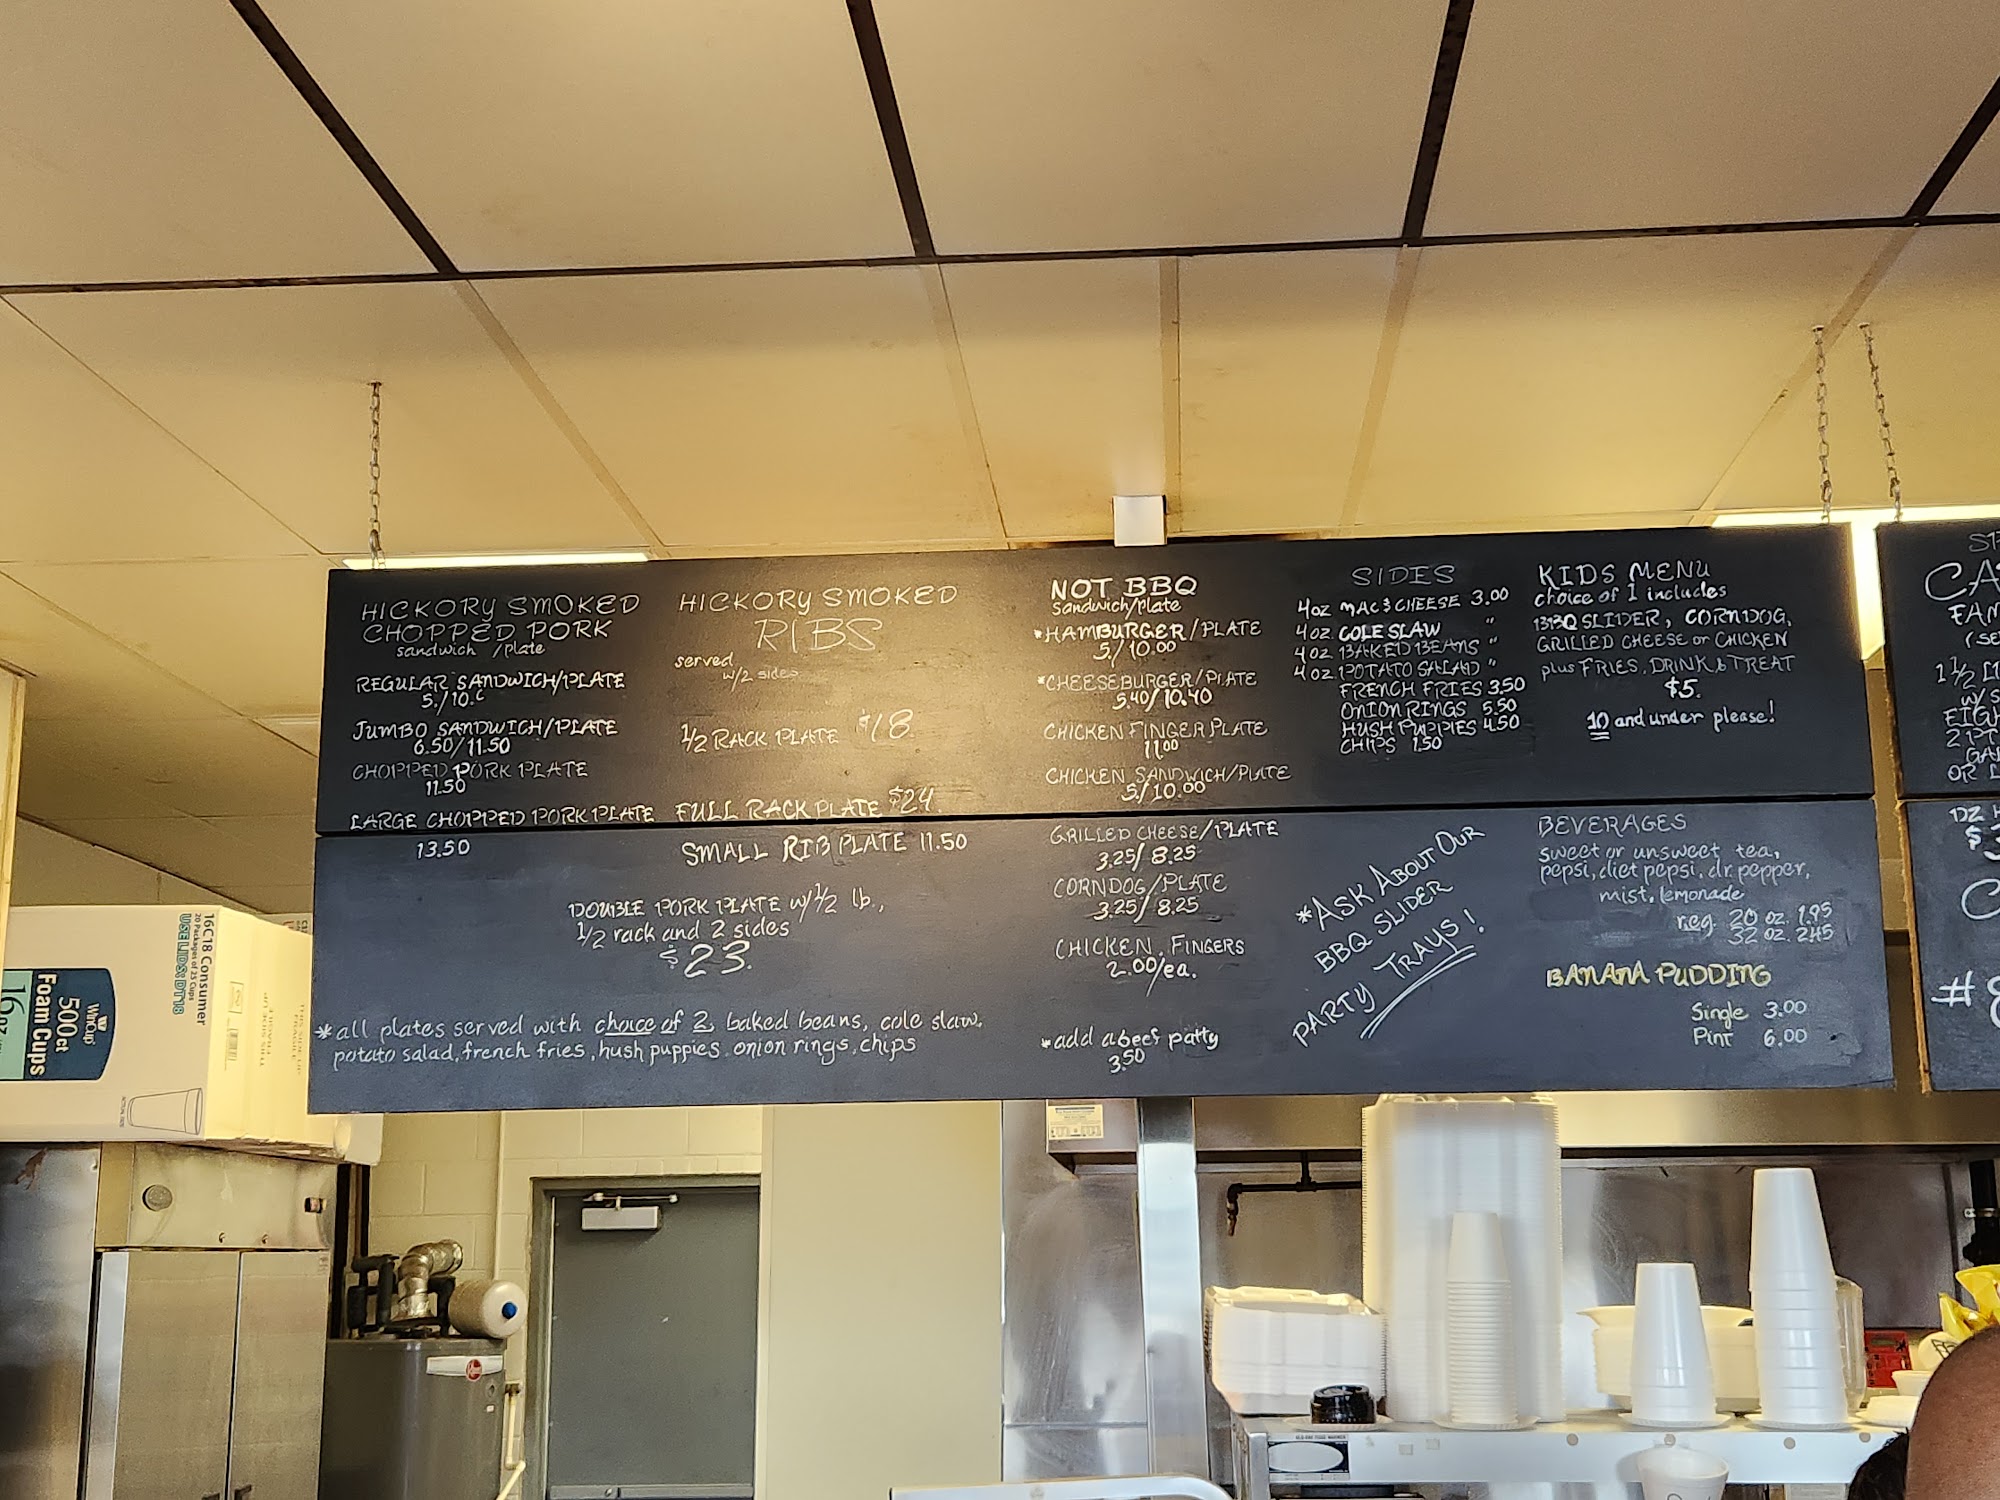 HICKORY SMOKED
CHOPPED PORK
sandwich /plate
REGULAR SANDWICH/PLATE
5./10.
JUMBO SANDWICH/PLATE
6.50/11.50
CHOPPED PORK PLATE
11.50
LARGE CHOPPED PORK PLATE
13.50
HICKORY SMOKED
RIBS
served
w/2 sides
1/2 RACK PLATE $18
FULL RACK PLATE $24.
SMALL RIB PLATE 11.50
DOUBLE PORK PLATE w/ 1/2 lb.,
1/2 rack and 2 sides
$23.
*all plates served with choice of 2, baked beans, cole slaw,
potato salad, french fries, hush puppies, onion rings, chips
NOT BBQ
sandwich/plate
*HAMBURGER/PLATE
5./10.00
*CHEESEBURGER/PLATE
5.40/10.40
CHICKEN FINGER PLATE
11.00
CHICKEN SANDWICH/PLATE
5./10.00
GRILLED CHEESE/PLATE
3.25/8.25
CORNDOG/PLATE
3.25/8.25
CHICKEN FINGERS
2.00/ea.
*add a beef patty
3.50
SIDES
4oz MAC & CHEESE 3.00
4oz COLE SLAW "
4oz BAKED BEANS "
4oz POTATO SALAD "
FRENCH FRIES 3.50
ONION RINGS 5.50
HUSH PUPPIES 4.50
CHIPS 1.50
*ASK ABOUT OUR
BBQ SLIDER
PARTY TRAYS!
KIDS MENU
choice of 1 includes
BBQ SLIDER, CORNDOG,
GRILLED CHEESE or CHICKEN
plus FRIES, DRINK & TREAT
$5.
10 and under please!
BEVERAGES
sweet or unsweet tea,
pepsi, diet pepsi, dr. pepper,
mist, lemonade
reg. 20 oz. 1.95
32 oz. 2.45
BANANA PUDDING
Single 3.00
Pint 6.00
CA
FAM
1 1/2 L
W/S
EIGH
2 PT
GA
OR
DZ
$
#8
16C18 Consumer
20 Packages of 25 Cups
USE LIDS: DT18
WinCup
500ct
16 oz
Foam Cups